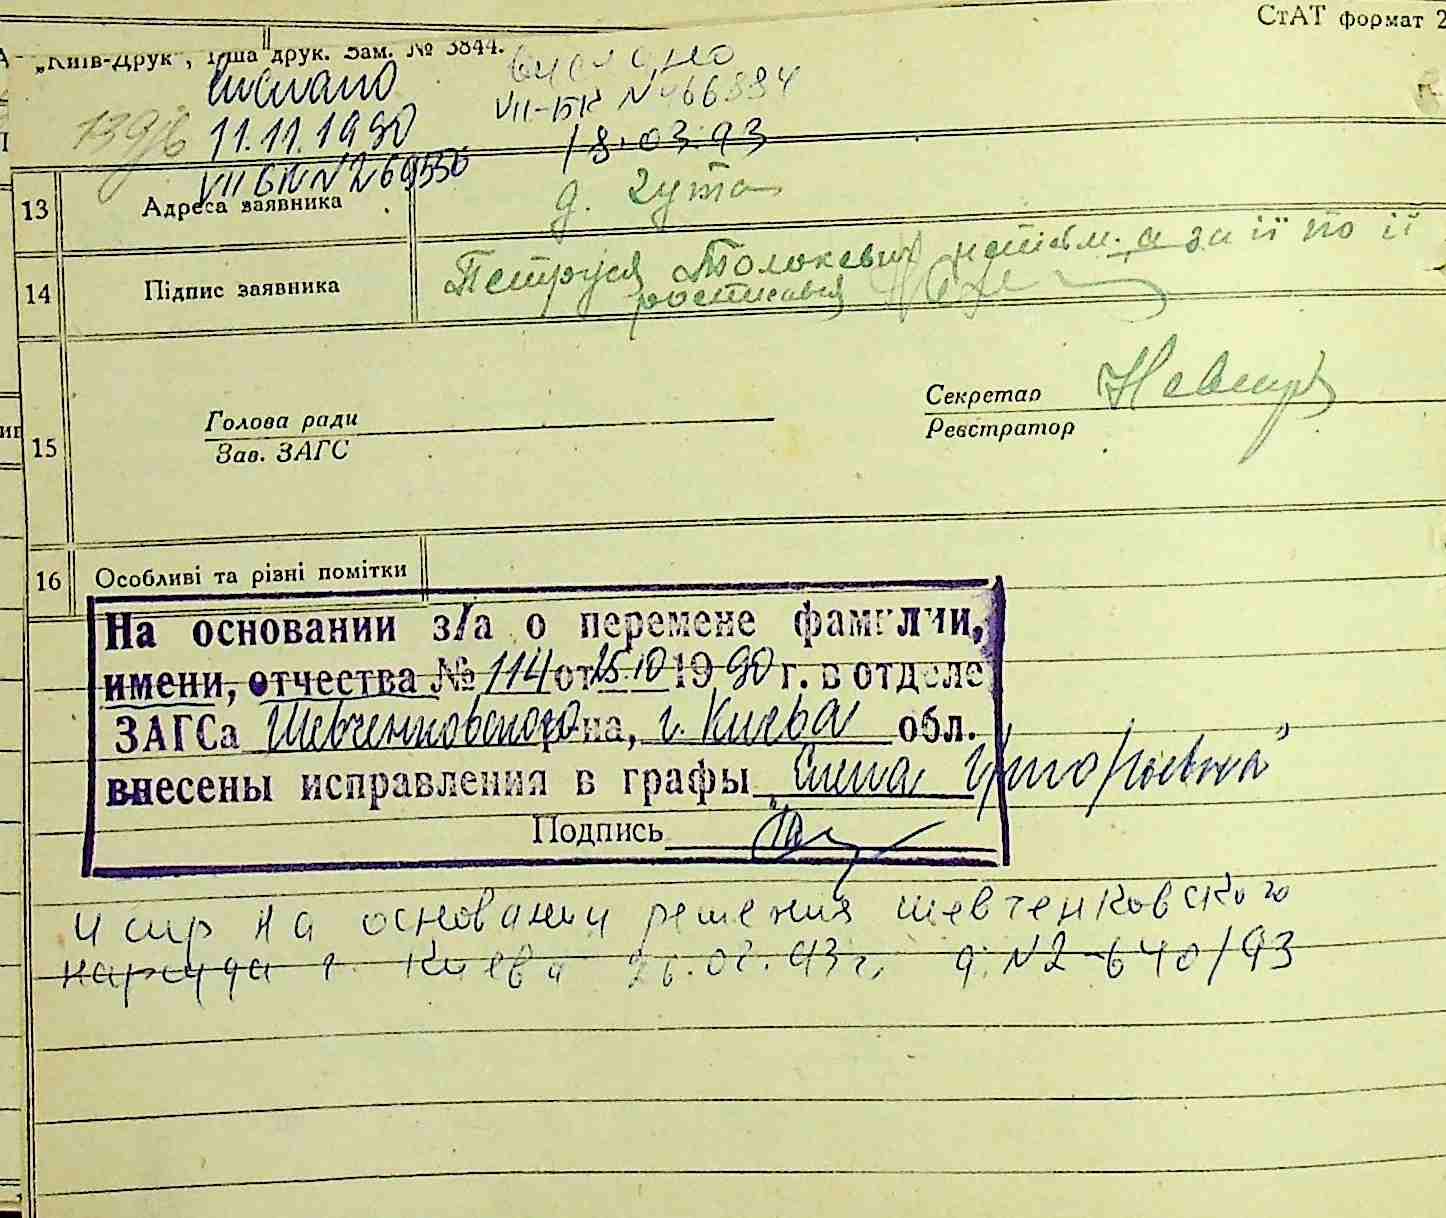 СтАТ формат 2
„Київ-Друк", 1 ша друк. Зам. № 3844.
выслано
VII-БК № 466884
18.03.93
139/6
11.11.1990
VII БК № 269556
13 Адреса заявника д. Гута
14 Підпис заявника Петруся Толокевич а за її по її
15 Голова ради
Зав. ЗАГС
Секретар
Реєстратор
16 Особливі та різні помітки
На основании з/а о перемене фамилии,
имени, отчества № 114 от 25.10 1990 г. в отделе
ЗАГСа Шевченковского р-на, г. Киева обл.
внесены исправления в графы „Елена Григорьевна"
Подпись
испр на основании решения шевченковского
нарсуда г. Киева 26.02.93 г. д. № 2-640/93